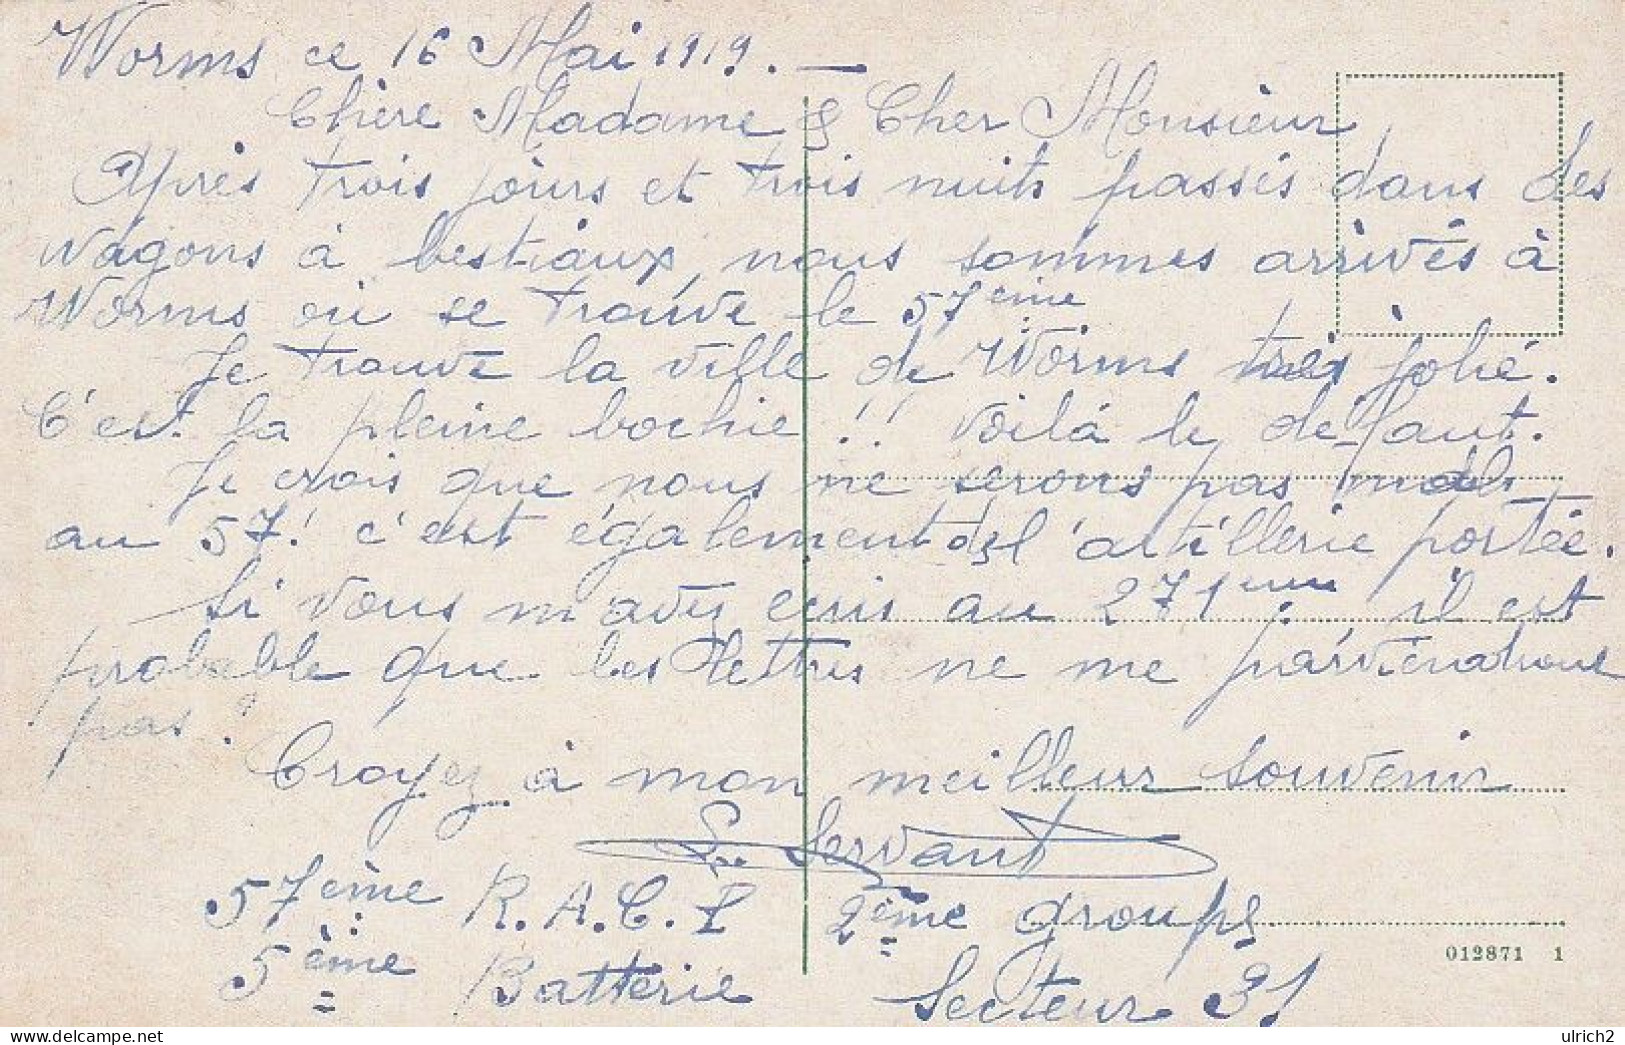 Worms ce 16 Mai 1919. —
Chère Madame & Cher Monsieur
Après trois jours et trois nuits passés dans des
wagons à bestiaux, nous sommes arrivés à
Worms où se trouve le 57ème
Je trouve la ville de Worms très jolie.
C'est la pleine bochie !! voilà le defaut.
Je crois que nous ne serons pas mals
au 57! c'est également de l'artillerie portée.
Si vous m'avez ecris au 271eme il est
probable que les lettres ne me parviendrons
pas!
Croyez à mon meilleur souvenir
Servant
57ème R.A.C.P 2ème groupe
5ème Batterie Secteur 31
012871 1
ulrich2